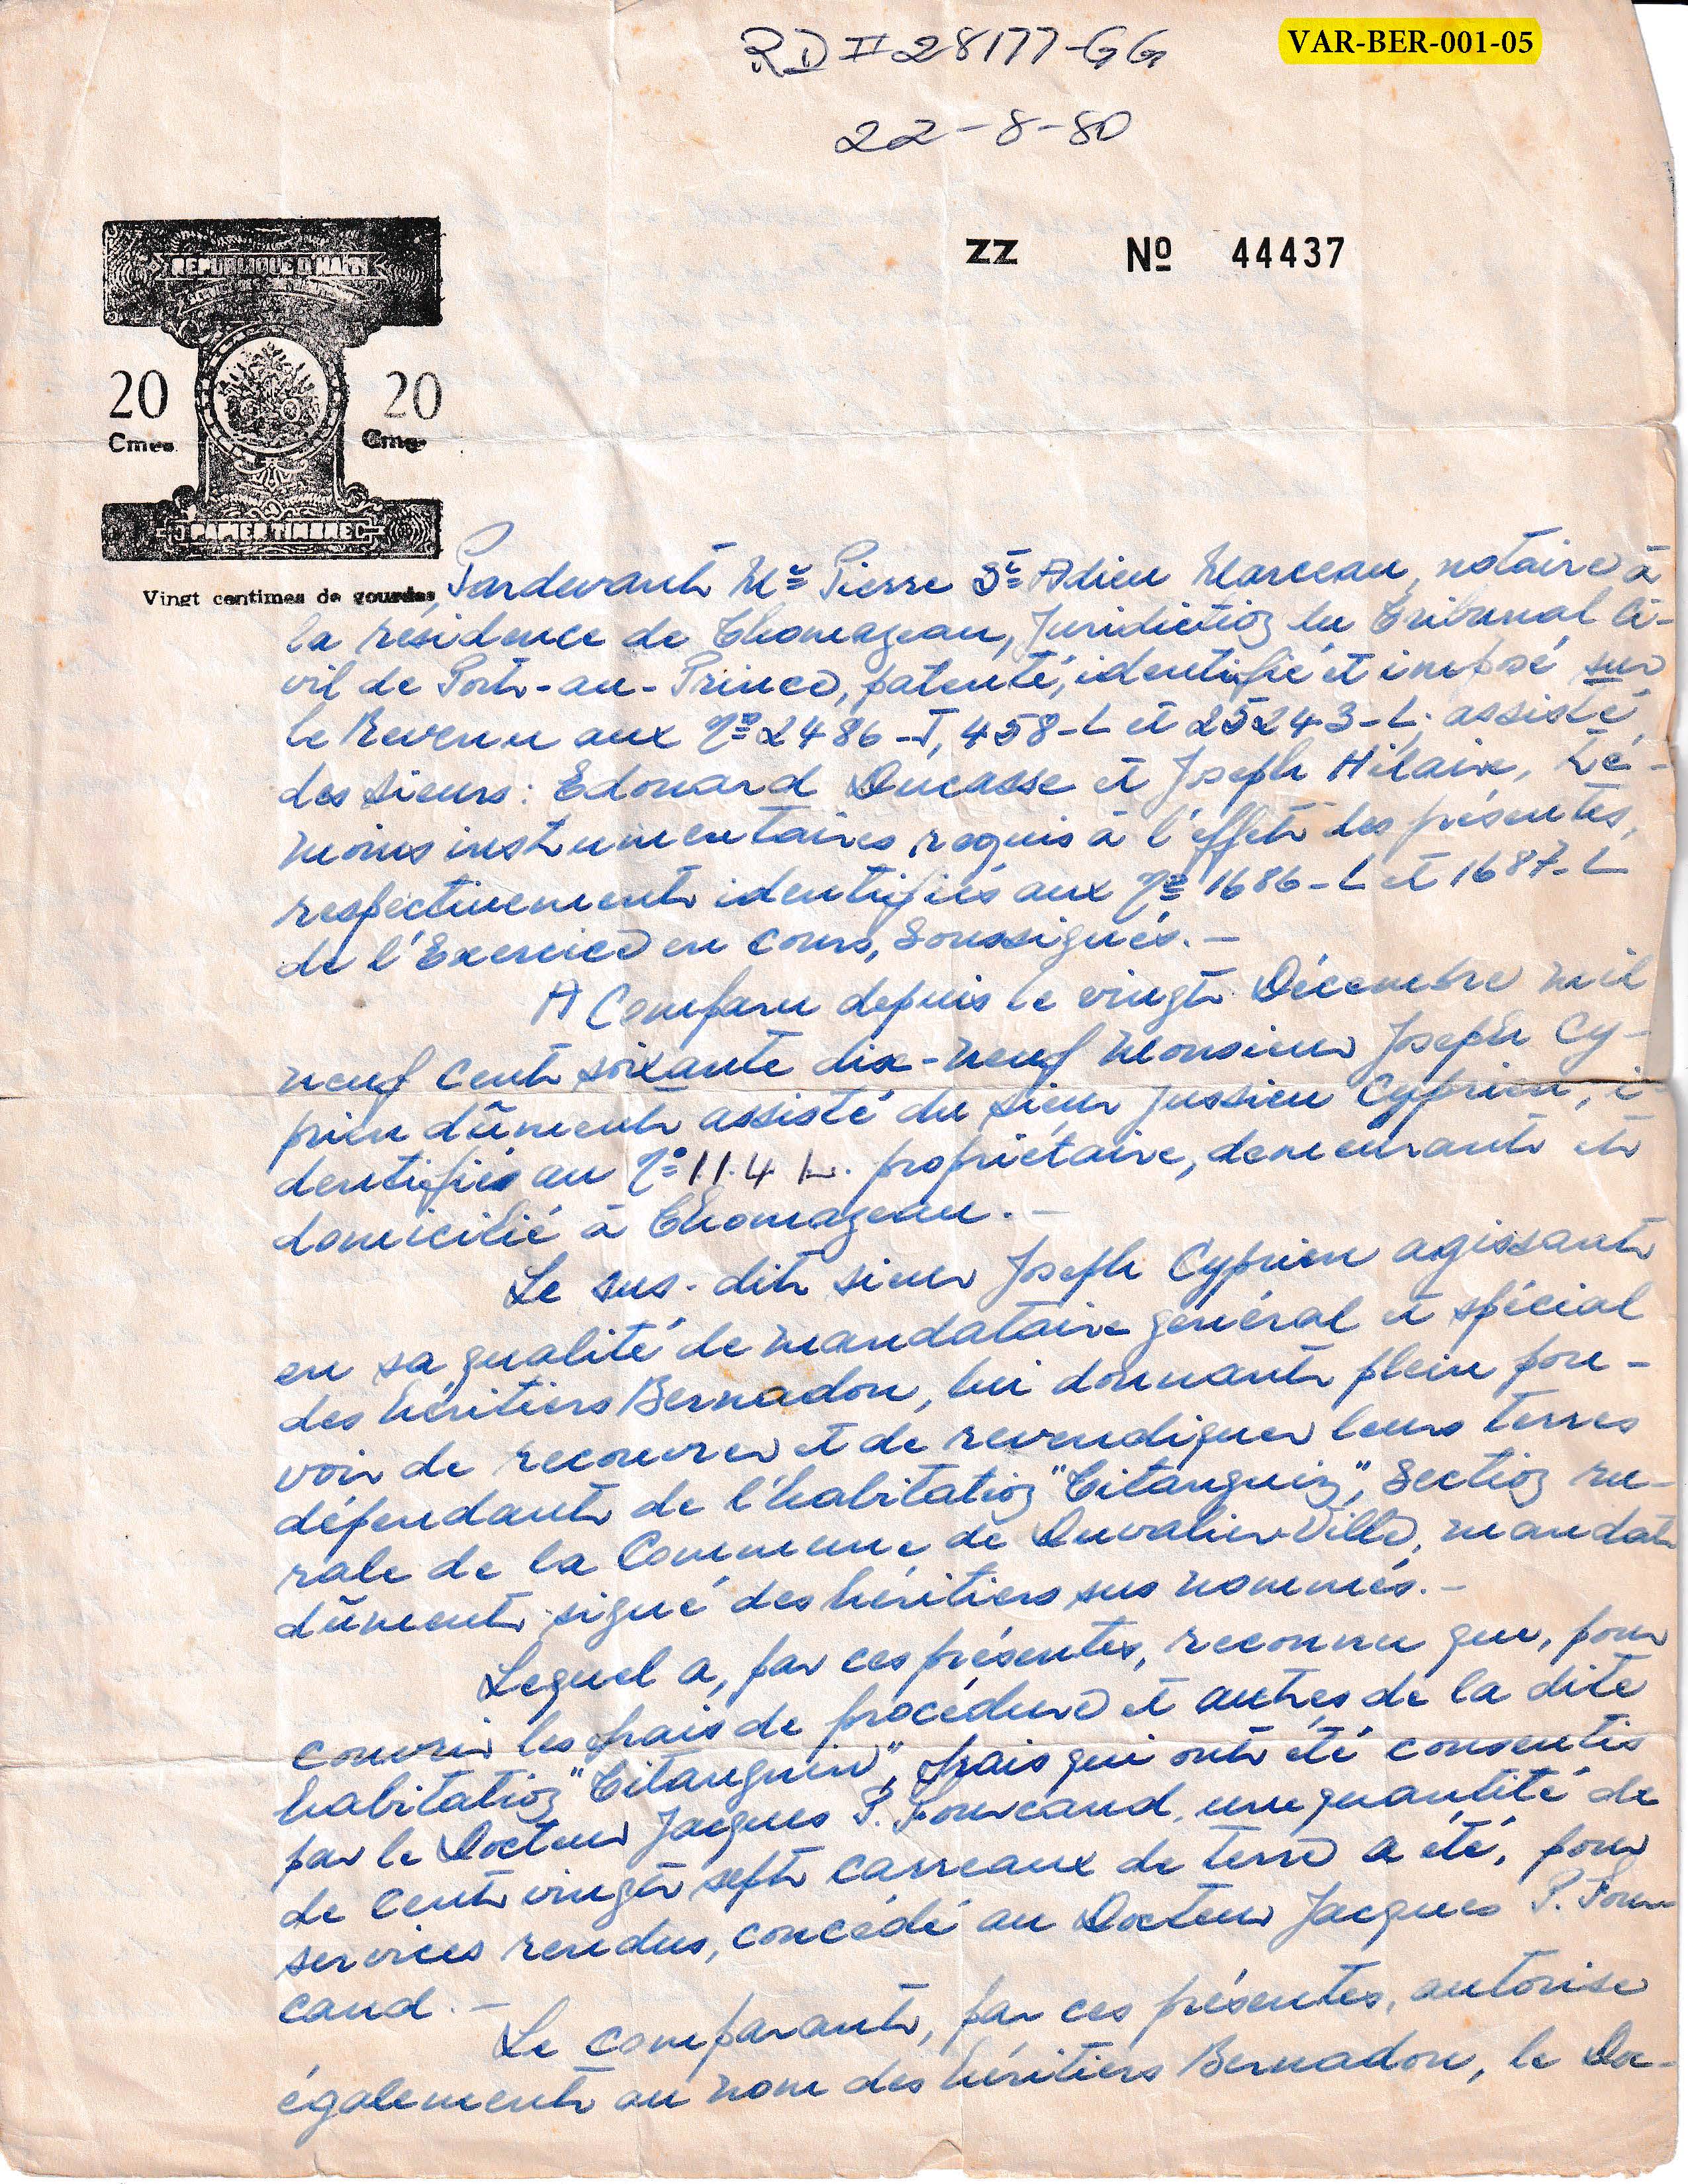 RD II 28177-GG
VAR-BER-001-05
22-8-80
REPUBLIQUE D'HAITI
ZZ Nº 44437
20 20
Cmes Cmes
PAPIER TIMBRE
Vingt centimes de gourdes
Pardevant Me Pierre St Adieu Marceau, notaire à
la résidence de Thomazeau, Juridiction du Tribunal Ci-
vil de Port-au-Prince, patenté, identifié et imposé sur
le Revenu aux Nos 2486-J, 458-L et 25243-L; assisté
des sieurs: Edouard Ducasse et Joseph Hilaire, té-
moins instrumentaires requis à l'effet des présentes,
respectivement identifiés aux Nos 1686-L et 1687-L
de l'Exercice en cours, Soussignés.-
A Comparu depuis le vingt Décembre mil
neuf cent soixante dix-neuf Monsieur Joseph Cy-
prien dûment assisté du sieur Jussieu Cyprien, i-
dentifiés au No 114 L. propriétaire, demeurant et
domicilié à Thomazeau.-
Le sus-dit sieur Joseph Cyprien agissant
en sa qualité de mandataire général et spécial
des héritiers Bernadou, lui donnant plein pou-
voir de recouvrer et de revendiquer leurs terres
dépendant de l'habitation "Titanguin", Section ru-
rale de la Commune de Duvalier-Ville, mandat
dûment signé des héritiers sus nommés.-
Lequel a, par ces présentes, reconnu que, pour
couvrir les frais de procédure et autres de la dite
habitation "Titanguin", frais qui ont été consentis
par le Docteur Jacques P. Fourcand, une quantité de
de cent vingt sept carreaux de terre a été, pour
services rendus, concédé au Docteur Jacques P. Four-
cand.-
Le comparant, par ces présentes, autorise
également au nom des héritiers Bernadou, le Doc-